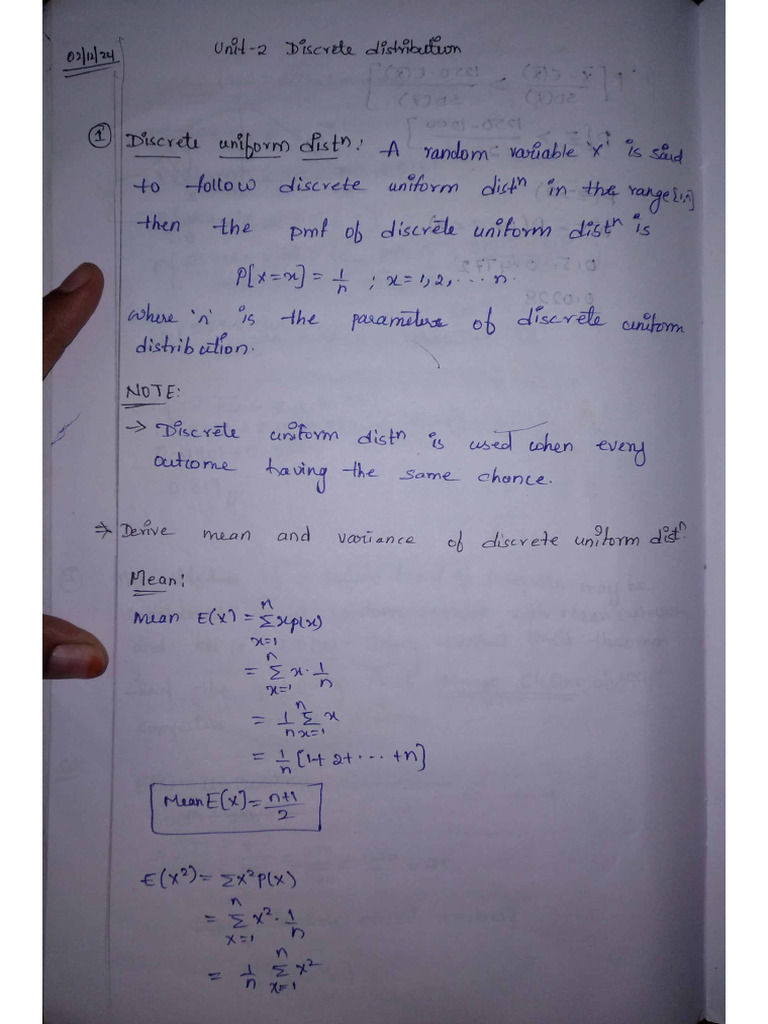 Unit-2 Discrete distribution
02/12/24
① Discrete uniform distⁿ: A random variable 'x' is said
to follow discrete uniform distⁿ in the range [1,n]
then the pmf of discrete uniform distⁿ is
P[X=x] = 1/n ; x=1,2,...n.
where 'n' is the parameter of discrete uniform
distribution.
NOTE:
→ Discrete uniform distⁿ is used when every
outcome having the same chance.
⇒ Derive mean and variance of discrete uniform distⁿ.
Mean:
Mean E(x) = Σₓ₌₁ⁿ xp(x)
= Σₓ₌₁ⁿ x·1/n
= 1/n Σₓ₌₁ⁿ x
= 1/n [1+2+...+n]
Mean E[x] = n+1/2
E(x²) = Σx²P(x)
= Σₓ₌₁ⁿ x²·1/n
= 1/n Σₓ₌₁ⁿ x²